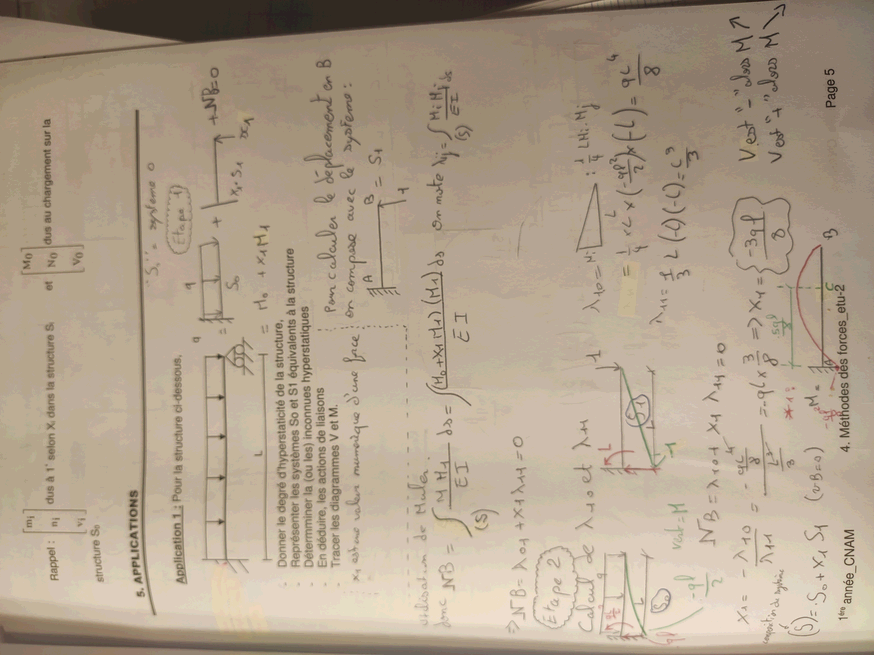 Rappel : [mi ni vi] dus à 1" selon Xi dans la structure Si et [M0 N0 V0] dus au chargement sur la
structure S0
5. APPLICATIONS
"S" = système 0
Application 1 : Pour la structure ci-dessous,
Etape 1
q
q
= S0 + x1.S1 + vB=0
x1
L
= M0 + x1M1
- Donner le degré d'hyperstaticité de la structure,
- Représenter les systèmes So et S1 équivalents à la structure
- Détermminer la (ou les) inconnues hyperstatiques
- En déduire, les actions de liaisons
- Tracer les diagrammes V et M.
x1 est une valeur numérique d'une force
Pour calculer le déplacement en B
on compose avec le système :
A B = S1
1
utilisation de
donc vB = ∫(S) M M1 / EI ds = ∫ (M0+x1M1)(M1) / EI ds
on note λij = ∫(S) Mi Mj / EI ds
=> vB = λ01 + x1λ11 = 0
Etape 2
Calcul de λ10 et λ11
S0
S1
L
-ql²/2
λ10 = Mi L : 1/4 LMi.Mj
= 1/4 x L x (-qL²/2) x (-L) = qL⁴/8
λ11 = 1/3 L (-L)(-L) = L³/3
vB = λ10 + x1 λ11 = 0
x1 = -λ10 / λ11 = - qL⁴/8 / L³/3 = -qL x 3/8 => x1 = -3ql/8
V est "-" alors M ↗
V est "+" alors M ↘
(S) = S0 + x1 S1 (vB=0)
M =
A C B
5ql/8
1ère année_CNAM
4. Méthodes des forces_etu-2
Page 5